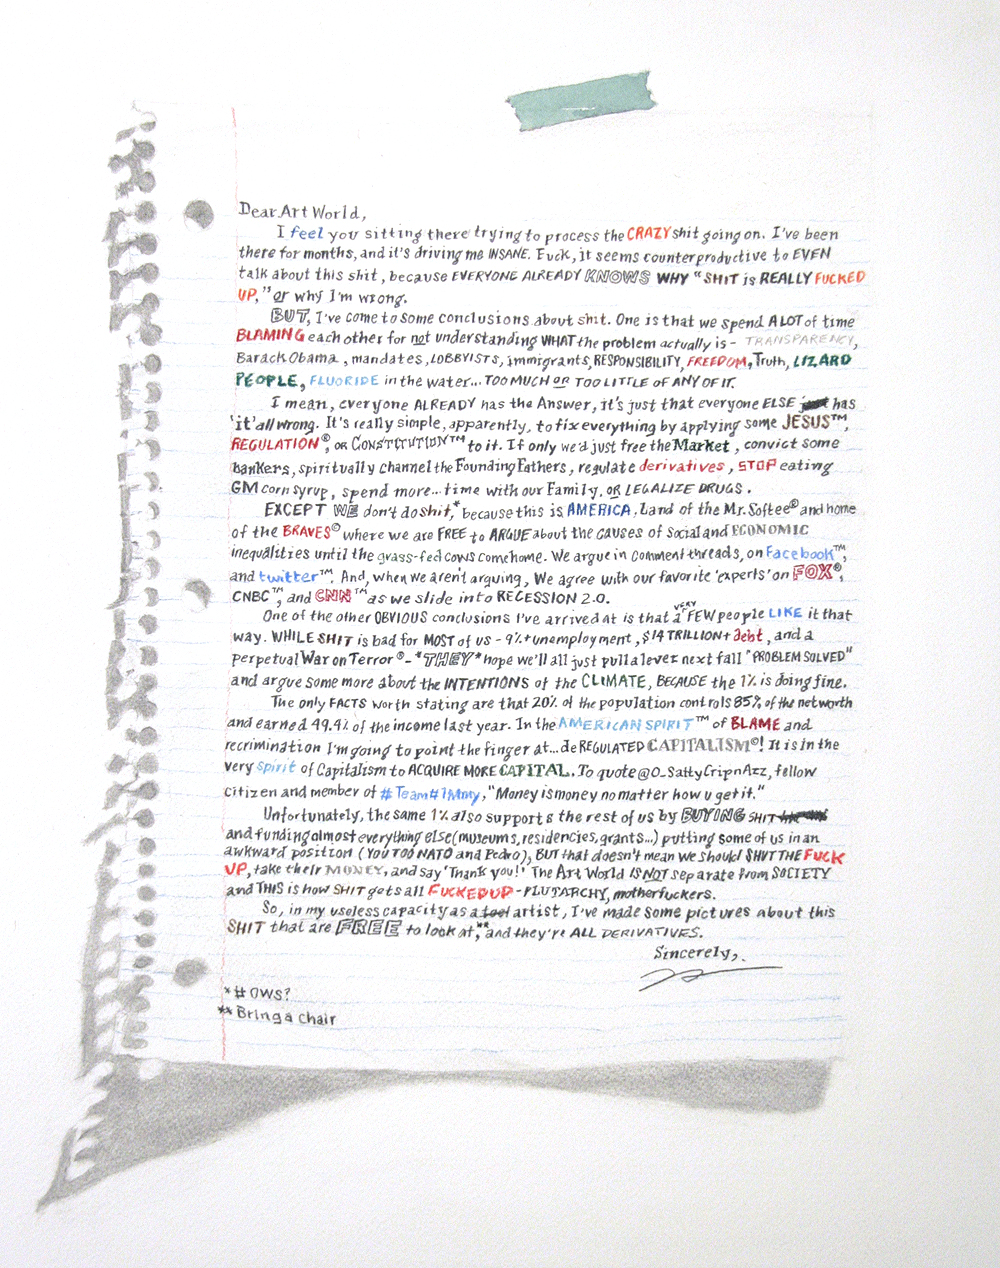 Dear Art World,
I feel you sitting there trying to process the CRAZY shit going on. I've been
there for months, and it's driving me INSANE. Fuck, it seems counterproductive to EVEN
talk about this shit, because EVERYONE ALREADY KNOWS WHY "SHIT is REALLY FUCKED
UP," or why I'm wrong.
BUT, I've come to some conclusions about shit. One is that we spend A LOT of time
BLAMING each other for not understanding WHAT the problem actually is - TRANSPARENCY,
Barack Obama, mandates, LOBBYISTS, immigrants, RESPONSIBILITY, FREEDOM, Truth, LIZARD
PEOPLE, FLUORIDE in the water... TOO MUCH OR TOO LITTLE OF ANY OF IT.
I mean, everyone ALREADY has the Answer, it's just that everyone ELSE just has
'it' all wrong. It's really simple, apparently, to fix everything by applying some JESUS™,
REGULATION®, OR CONSTITUTION™ to it. If only we'd just free the Market, convict some
bankers, spiritually channel the Founding Fathers, regulate derivatives, STOP eating
GM corn syrup, spend more... time with our Family, OR LEGALIZE DRUGS.
EXCEPT WE don't do shit,* because this is AMERICA, Land of the Mr. Softee® and home
of the BRAVES® where we are FREE to ARGUE about the CAUSES of Social and ECONOMIC
inequalities until the grass-fed cows come home. We argue in comment threads, on Facebook™,
and twitter™. And, when we aren't arguing, We agree with our favorite 'experts' on FOX®,
CNBC™, and CNN™ as we slide into RECESSION 2.0.
One of the other OBVIOUS conclusions I've arrived at is that a VERY FEW people LIKE it that
way. WHILE SHIT is bad for MOST of us - 9%+ unemployment, $14 TRILLION+ debt, and a
perpetual War on Terror® - *THEY* hope we'll all just pull a lever next fall "PROBLEM SOLVED"
and argue some more about the INTENTIONS of the CLIMATE, BECAUSE the 1% is doing fine.
The only FACTS worth stating are that 20% of the population controls 85% of the net worth
and earned 49.4% of the income last year. In the AMERICAN SPIRIT™ of BLAME and
recrimination I'm going to point the finger at... deREGULATED CAPITALISM©! It is in the
very spirit of Capitalism to ACQUIRE MORE CAPITAL. To quote @O_SattyCripnAzz, fellow
citizen and member of #Team#1Mmy, "Money is money no matter how u get it."
Unfortunately, the same 1% also supports the rest of us by BUYING SHIT
and funding almost everything else (museums, residencies, grants...) putting some of us in an
awkward position (YOU TOO NATO and Pedro), BUT that doesn't mean we should SHUT THE FUCK
UP, take their MONEY, and say 'Thank you!' The Art World IS NOT separate from SOCIETY
and THIS is how SHIT gets all FUCKED UP - PLUTARCHY, motherfuckers.
So, in my useless capacity as a tool artist, I've made some pictures about this
SHIT that are FREE to look at,** and they're ALL DERIVATIVES.
Sincerely,
*#OWS?
** Bring a chair